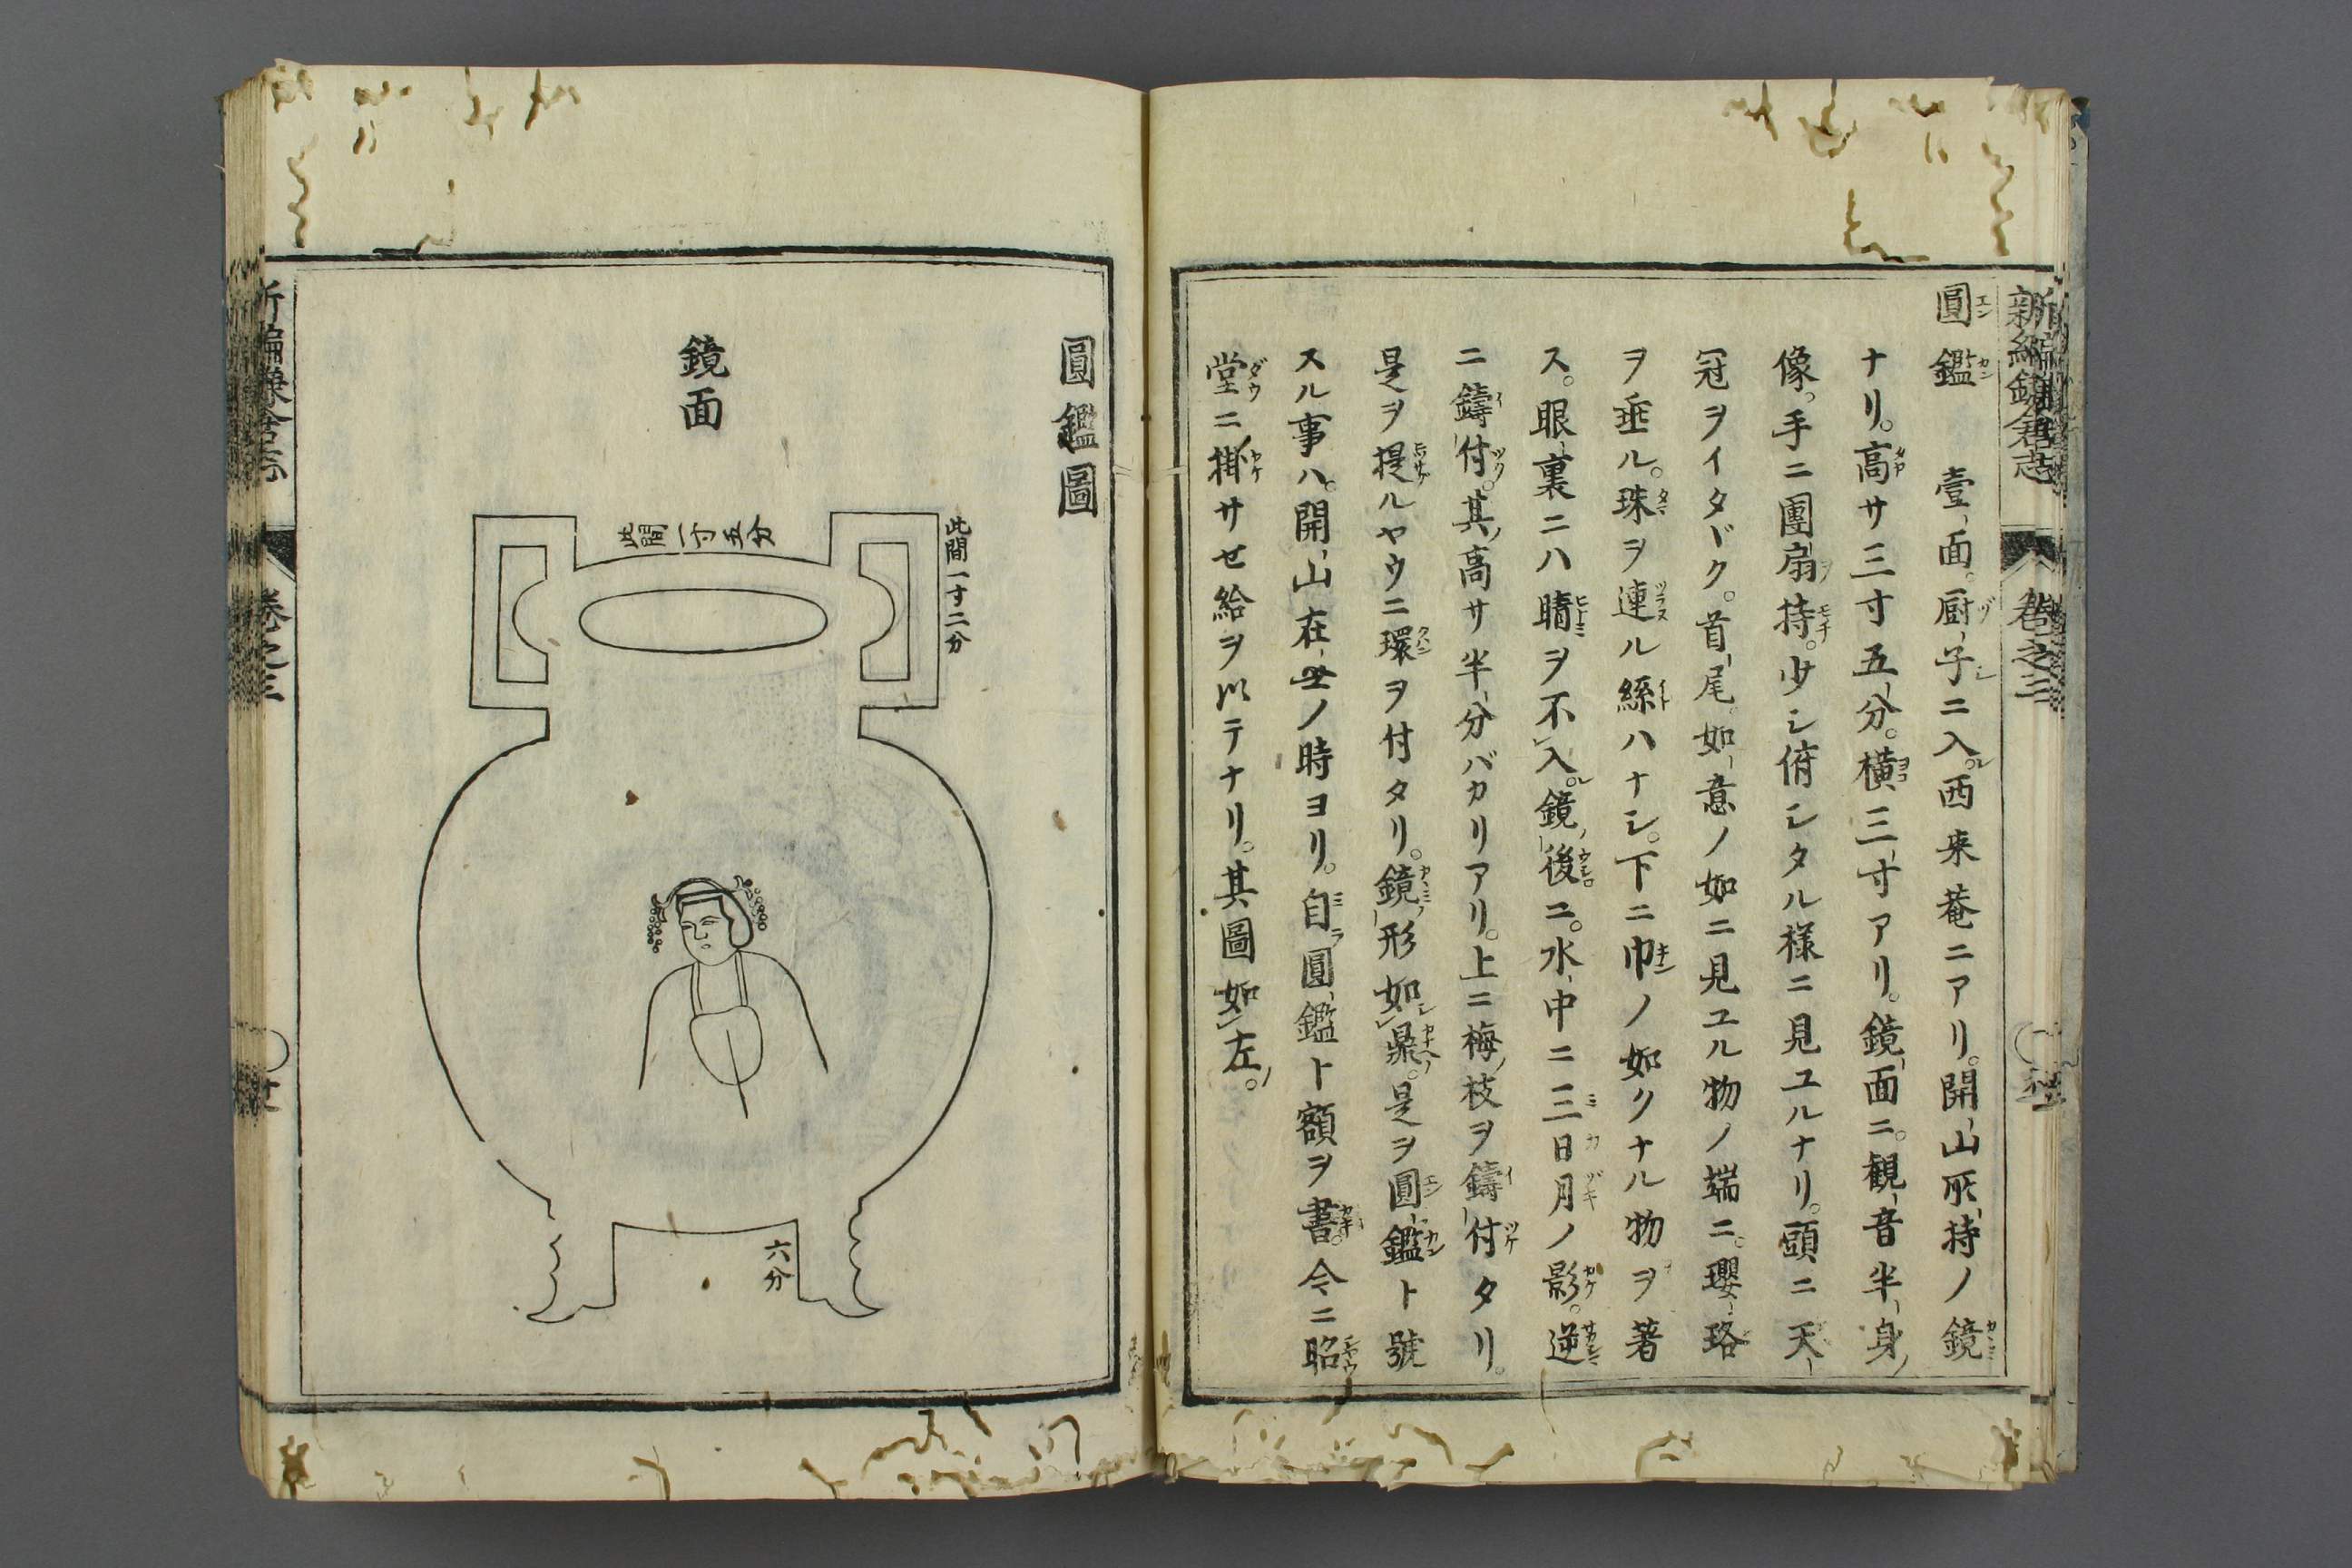 新編鎌倉志 卷之三
圓鑑 壹面。厨子ニ入。西来菴ニアリ。開山所持ノ鏡
ナリ。高サ三寸五分。横三寸アリ。鏡面ニ。観音半身ノ
像。手ニ團扇ヲ持。少シ俯シタル様ニ見ユルナリ。頭ニ天
冠ヲイタヾク。首尾。如意ノ如ニ見ユル物ノ端ニ。瓔珞
ヲ垂ル。珠ヲ連ル絲ハナシ。下ニ巾ノ如クナル物ヲ著
ス。眼裏ニハ睛ヲ不入。鏡後ニ。水中ニ三日月ノ影。逆
ニ鑄付。其高サ半分バカリアリ。上ニ梅枝ヲ鑄付タリ。
是ヲ提ルヤウニ環ヲ付タリ。鏡形如鼎。是ヲ圓鑑ト號
スル事ハ。開山在世ノ時ヨリ。自圓鑑ト額ヲ書。今ニ昭
堂ニ掛サセ給ヲ以テナリ。其圖如左。
圓鑑圖
鏡面
此間一寸二分
此間一寸五分
六分
新編鎌倉志 卷之三